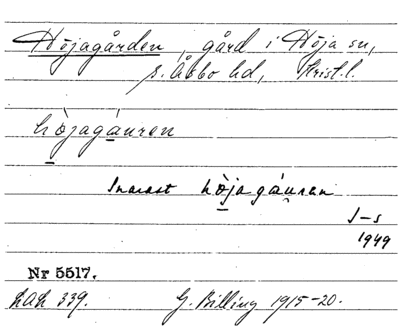 Höjagården, gård i Höja sn,
S. Åsbo hd, Krist. l.
hòjagáuren
Snarast hòjagáu̯ren
I-s
1949
Nr 5517.
hah 339. G. Billing 1915-20.